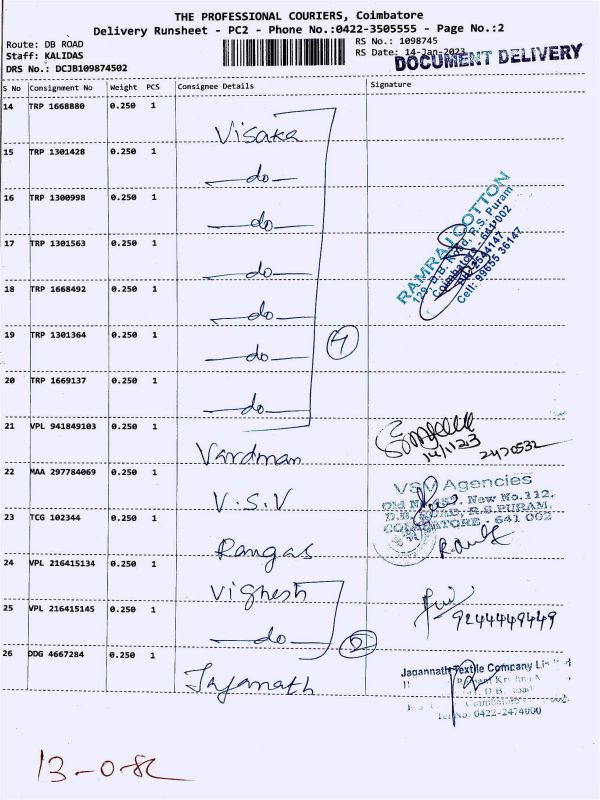 THE PROFESSIONAL COURIERS, Coimbatore
Delivery Runsheet - PC2 - Phone No.:0422-3505555 - Page No.:2
Route: DB ROAD
Staff: KALIDAS
DRS No.: DCJB109874502
RS No.: 1098745
RS Date: 14-Jan-2023
DOCUMENT DELIVERY
S No Consignment No Weight PCS Consignee Details Signature
14 TRP 1668880 0.250 1 Visaka
15 TRP 1301428 0.250 1 do
16 TRP 1300998 0.250 1 do
17 TRP 1301563 0.250 1 do
18 TRP 1668492 0.250 1 do
19 TRP 1301364 0.250 1 do
20 TRP 1669137 0.250 1 do
7
RAMRAJ COTTON
129, D.B. Road, R.S. Puram
Coimbatore - 641 002
Cell: 99655 36147
21 VPL 941849103 0.250 1 Vardman
14/1/23
2470532
22 MAA 297784069 0.250 1 V.S.V
VSV Agencies
New No.112,
D.B. ROAD, R.S.PURAM,
COIMBATORE - 641 002
23 TCG 102344 0.250 1 Rangas
24 VPL 216415134 0.250 1 Vighesh
25 VPL 216415145 0.250 1 do
2
9244449449
26 DDG 4667284 0.250 1 Jajanath
Jagannath Textile Company
D.B. Road
Coimbatore
Tel No: 0422-2474000
13-0-82